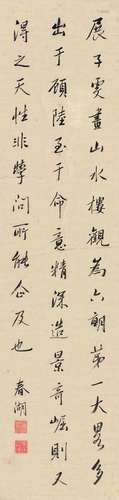 展子虔畫山水樓觀為六朝第一大畧多
出于顧陸至于命意精深造景奇崛則又
得之天性非學問所能企及也
春湖